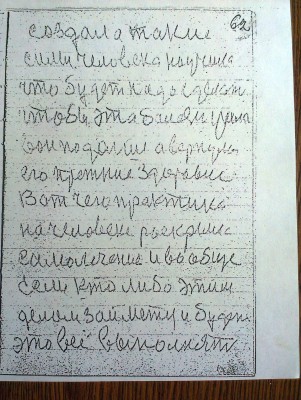 62
создала такие
сили человека научила
что будет надо сделат
чтобы эта болезн ушла
вон подалше а вернула
его прежние здоравие
Вот чего практика
на человеке раскрила
самолечение и вообще
если кто либо этим
делом займется и будет
это всё выполнят